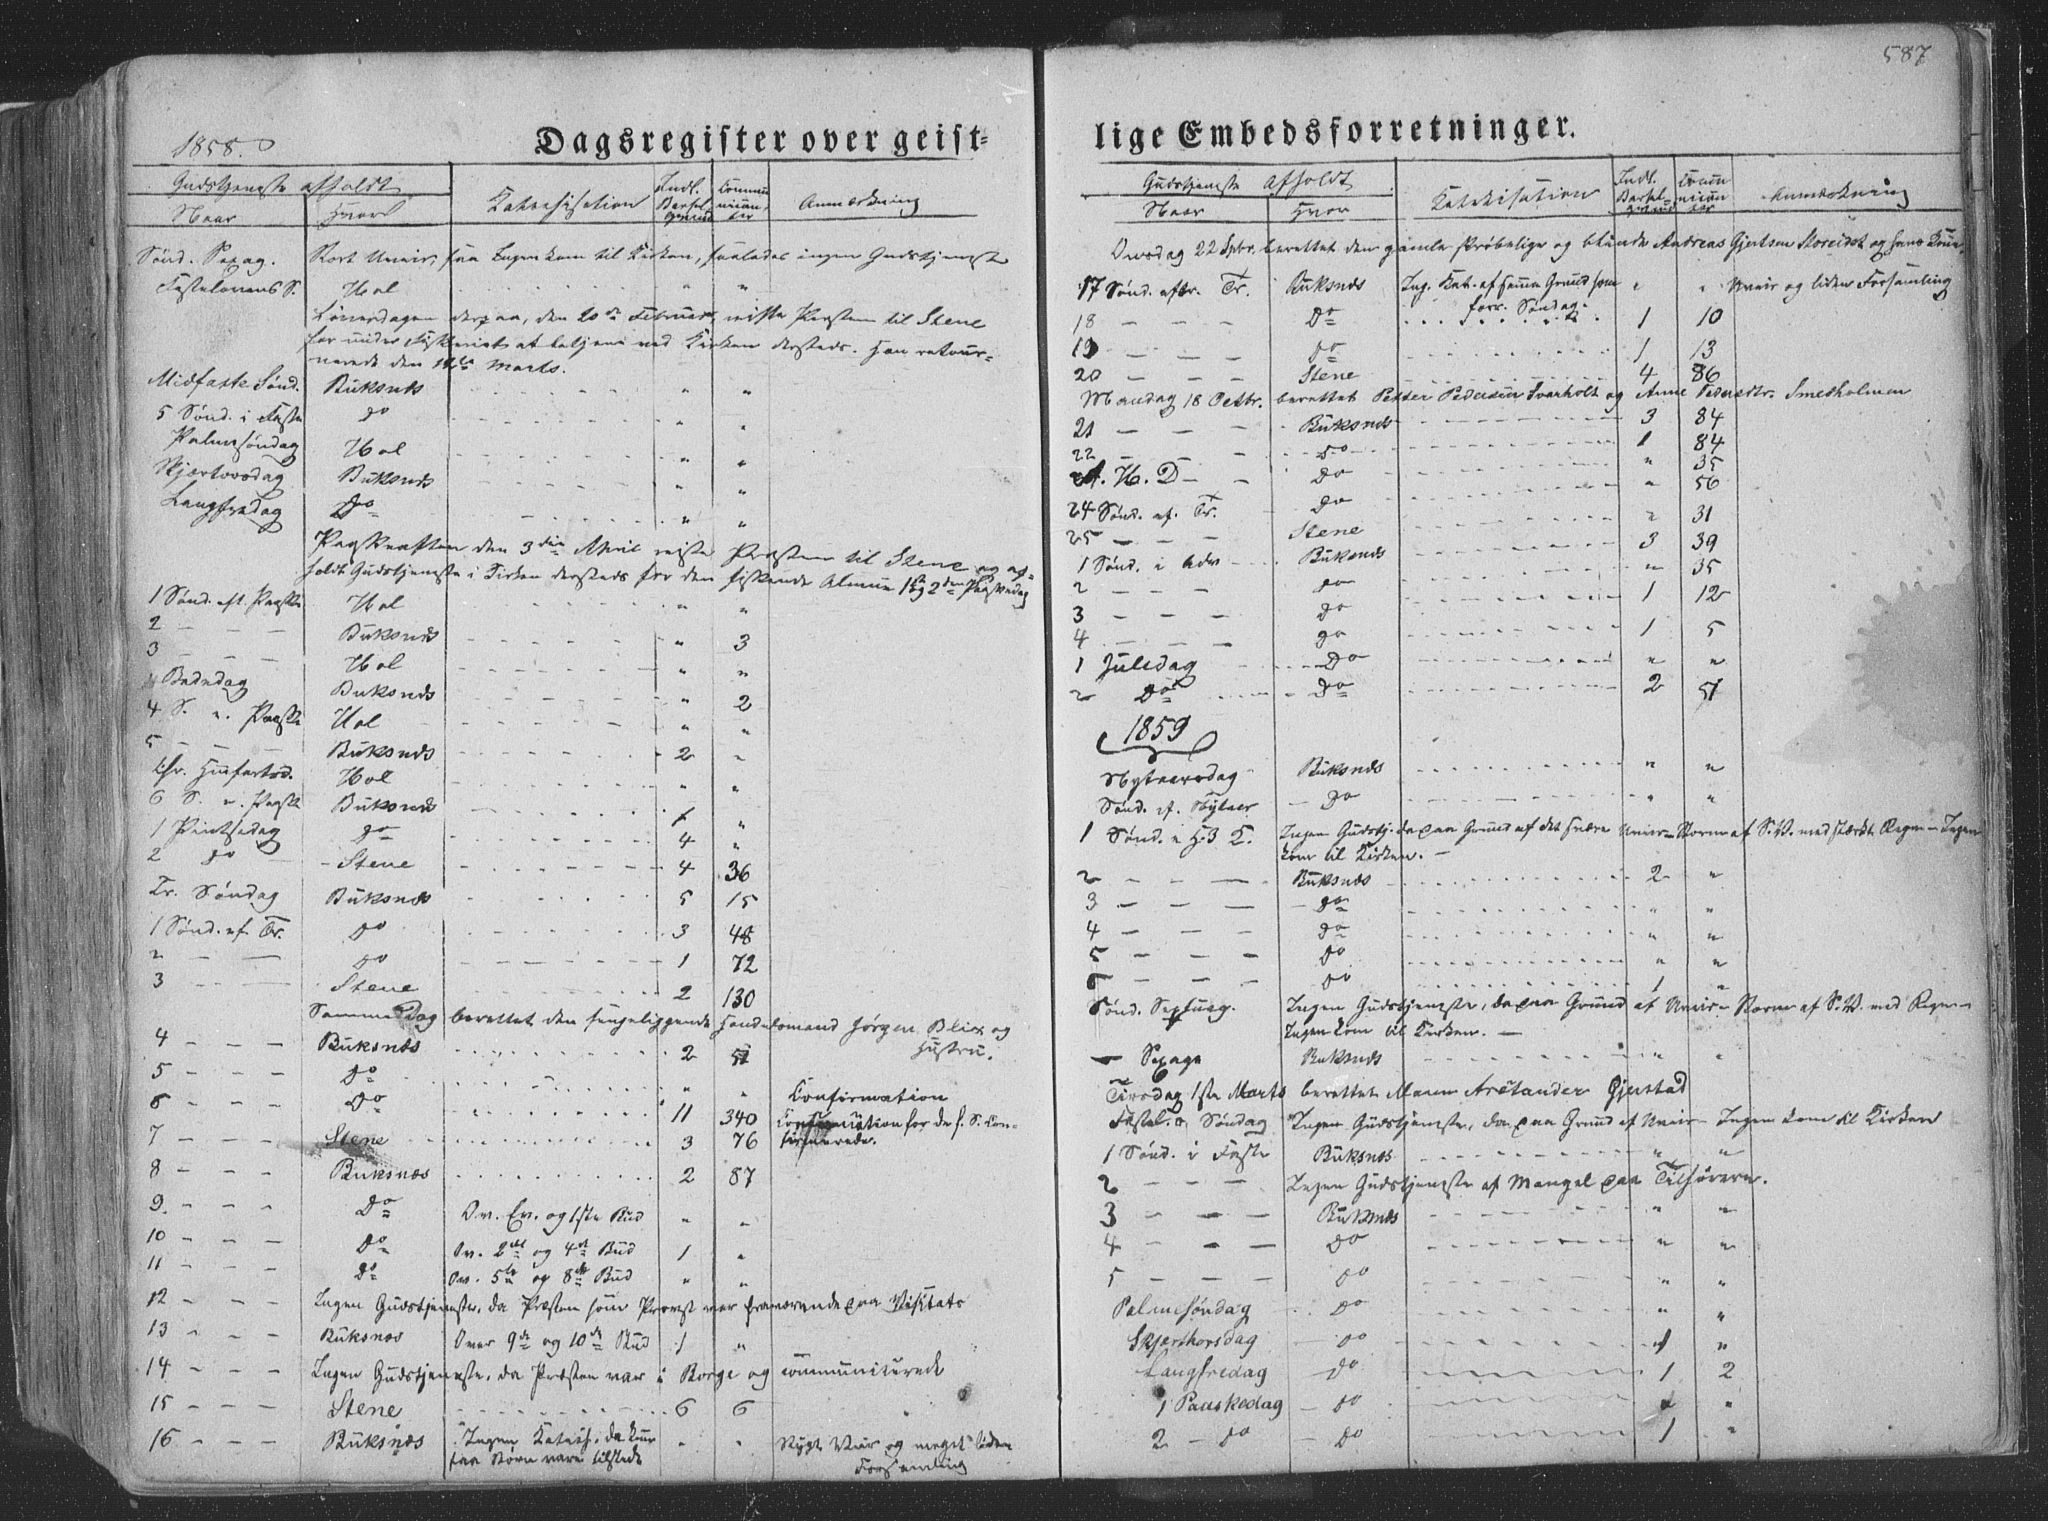 587
1858.
Dagsregister over geist-
lige Embedsforretninger.
Gudstjeneste afholdt
Naar Hvor Katechisation Indl. Barselqvind Communicanter Anmærkning
Sønd. Sexag. Stort Uveir, faa Ingen kom til Kirken, saaledes ingen Gudstjeneste
Fastelavens S. Hol " "
Løverdagen derpaa, den 20de Februar reiste Præsten til Stene
for under Fiskeriet at betjene ved Kirken dersteds. Han retour-
nerede den Marts.
Midfaste Sønd. Buksnæs " "
5 Sønd. i Faste do " "
Palmesøndag Hol " "
Skjærtorsdag Buksnæs " "
Langfredag Do " "
Paaskeaften den 3die April reiste Præsten til Stene og af-
holdt Gudstjeneste i Kirken dersteds for den fiskende Almue 1ste og 2den Paaskedag
1 Sønd. eft. Paaske Hol " "
2 — — — Buksnæs " 3
3 — — — Hol " "
Bededag Buksnæs " 2
4 S. e. Paaske Hol " "
5 — — Buksnæs 2 "
Chr. Himfartsd. Hol " "
6 S. e. Paaske Buksnæs 1 "
1 Pintsedag do 4 "
2 do Stene 4 36
Tr. Søndag Buksnæs 5 15
1 Sønd. ef. Tr. do 3 48
2 — — do 1 72
3 — — Stene 2 130
Sammedag berettet den sengeliggende Handelsmand Jørgen Blix og
Hustru.
4 — — — Buksnæs 2 51
5 — — — Do " " Confirmation
6 — — — Do 11 340 Communion for de f. S. Con-
firmerede.
7 — — — Stene 3 76
8 — — — Buksnæs 2 87
9 — — — Do Ov. Ev. og 1ste Bud " "
10 — — — Do Ov. 2det og 4de Bud 1 "
11 — — — Do Ov. 5te og 8de Bud " "
12 — — — Ingen Gudstjeneste, da Præsten som Provst var fraværende paa Visitats
13 — — — Buksnæs Over 9de og 10de Bud 1 "
14 — — — Ingen Gudstjeneste, da Præsten var i Borge og communicerede
15 — — — Stene 6 6
16 — — — Buksnæs Ingen Katech. da kun
faa Børn vare tilstede " " Stygt Veir og meget liden
Forsamling
Gudstjeneste afholdt
Naar Hvor Katekisation Indl. Barselqvind Communicanter Anmærkning
Onsdag 22 Spbr. berettet den gamle skrøbelige og blinde Andreas Gjertsen Storeidet og hans Kone
17 Sønd. eftr. Tr. Buksnæs Ing. Kat. af samme Grund som
forr. Søndag. " " Uveir og liden Forsamling
18 — — — Do 1 10
19 — — — do 1 13
20 — — — Stene 4 86
Mandag 18 Octbr. berettet Petter Pedersen Svarholt og Anne Pedersdtr. Smedholmen
21 — — — Buksnæs 3 84
22 — — — do 1 84
A. H. D — — do " 35
" 56
24 Sønd. ef. Tr. do " 31
25 — — — Stene 3 39
1 Sønd. i Adv Buksnæs " 35
2 — — — do 1 12
3 — — — do
4 — — — do 1 5
1 Juledag Do " "
2 Do Do 2 51
1859
Nytaarsdag Buksnæs " "
Sønd. ef. Nytaar Do " "
1 Sønd. e. H. 3 K. Ingen Gudstj. da paa Grund af det svære Uveir – Storm af S.V. med stærkt Regn – Ingen
kom til Kirken. —
2 — — — Buksnæs 2 "
3 — — — Do " "
4 — — — Do " "
5 — — — do " "
6 — — — do 1 "
Sønd. Septuag. Ingen Gudstjeneste, da paa Grund af Uveir – Storm af S.V. med Regn –
Ingen kom til Kirken. —
— Sexage Buksnæs " "
Tirsdag 1ste Marts berettet Maren Gjerstad
Fastel. Søndag Ingen Gudstjeneste, da paa Grund af Uveir – Ingen kom til Kirken
1 Sønd. i Faste Buksnæs " "
2 — — — Ingen Gudstjeneste af Mangel paa Tilhørere.
3 — — — Buksnæs " "
4 — — — Do " "
5 — — — do " "
Palmesøndag do " "
Skjærthorsdag do 1 "
Langfredag do 1 2
1 Paaskedag do "
2 — do do 1 "